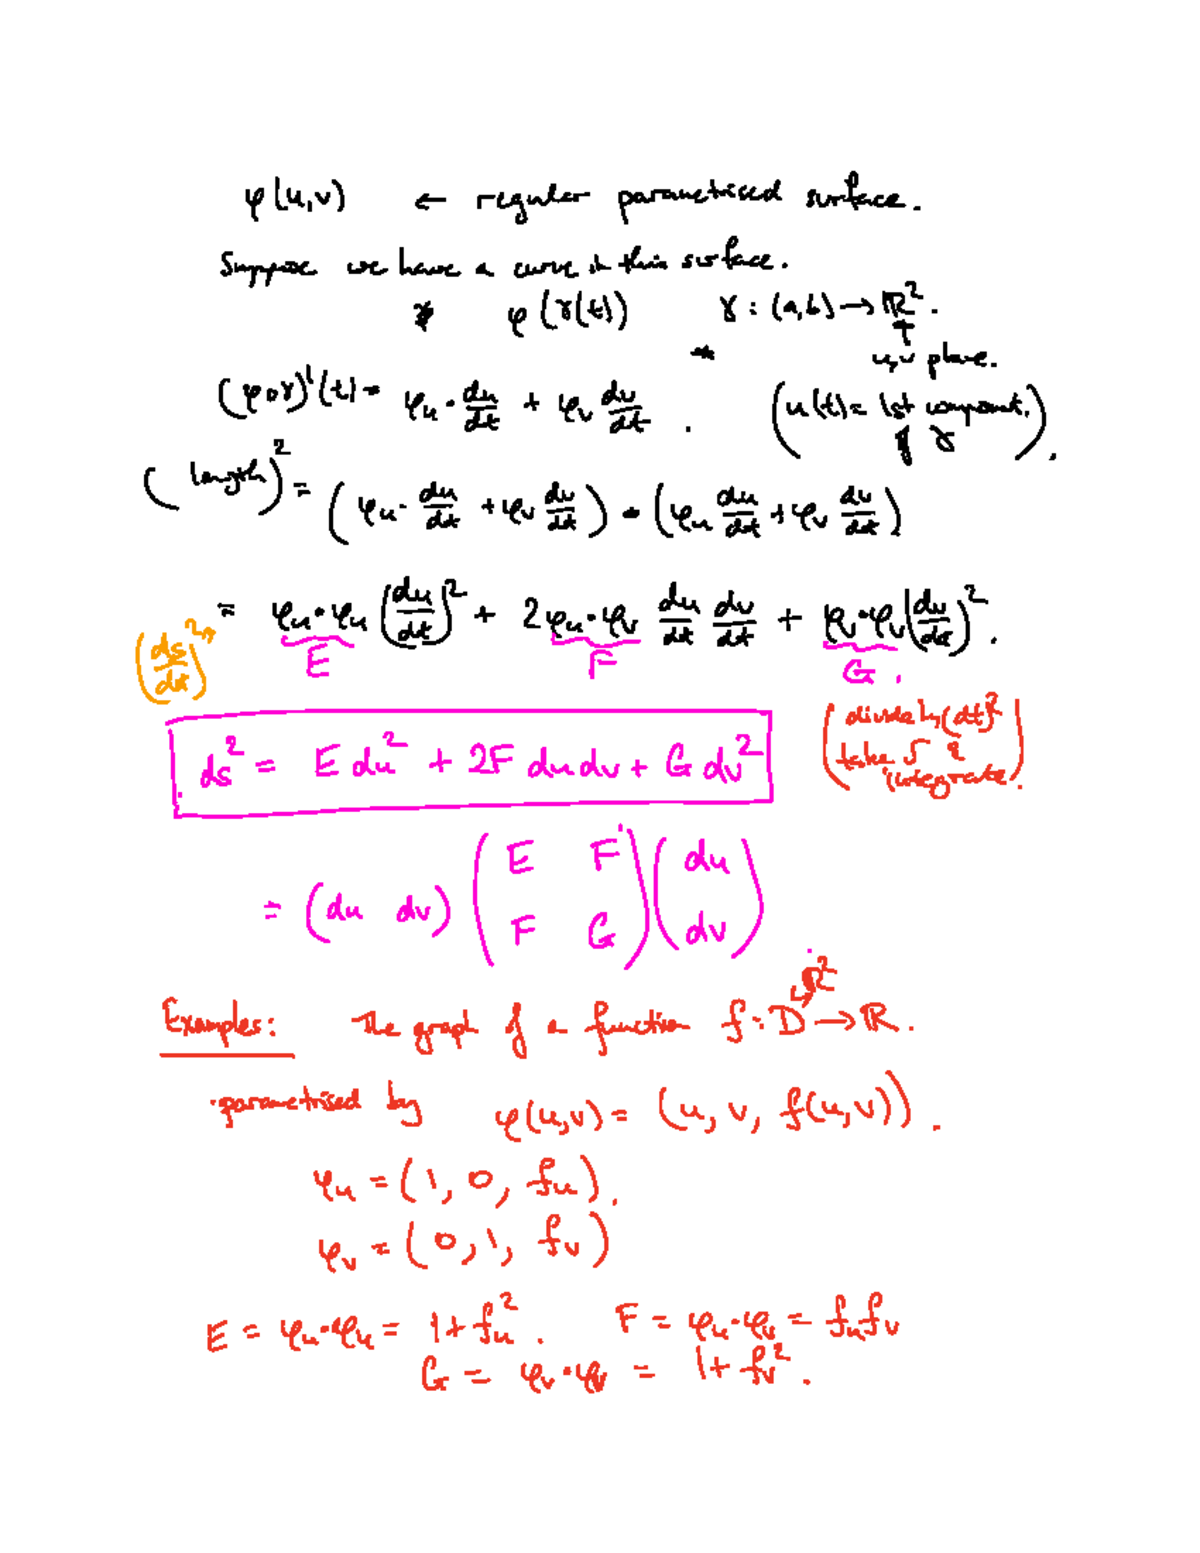 φ(u,v) ← regular parametrised surface.
Suppose we have a curve in this surface.
φ(γ(t)) γ : (a,b) → ℝ².
↑
u,v plane.
(φ∘γ)'(t) = φᵤ · du/dt + φᵥ dv/dt .
(u(t) = 1st component of γ).
(length)² = (φᵤ · du/dt + φᵥ dv/dt) • (φᵤ du/dt + φᵥ dv/dt)
= φᵤ·φᵤ (du/dt)² + 2φᵤ·φᵥ du/dt dv/dt + φᵥ·φᵥ (dv/dt)².
(ds/dt)²
E F G.
ds² = E du² + 2F du dv + G dv²
(divide by (dt)²
take √ &
integrate).
= (du dv) (E F
F G) (du
dv)
Examples: The graph of a function f : D → ℝ.
↳ ℝ²
·parametrised by φ(u,v) = (u, v, f(u,v)).
φᵤ = (1, 0, fᵤ).
φᵥ = (0, 1, fᵥ)
E = φᵤ·φᵤ = 1 + fᵤ². F = φᵤ·φᵥ = fᵤfᵥ
G = φᵥ·φᵥ = 1 + fᵥ².